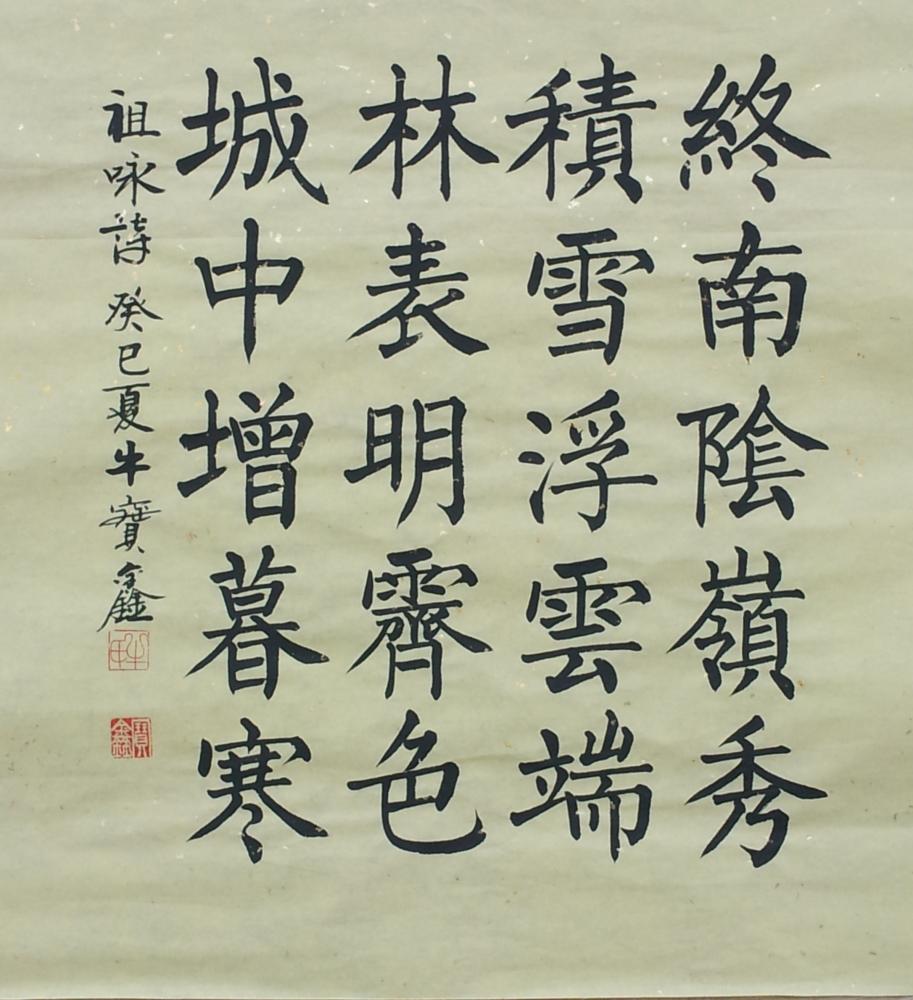 終南陰嶺秀
積雪浮雲端
林表明霽色
城中增暮寒
祖咏詩 癸巳夏牛寶鑫
寶鑫